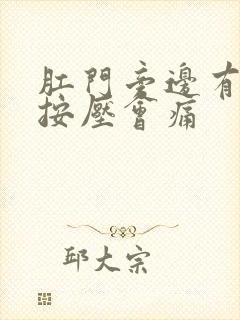 肛門旁邊有
按壓會痛
邱大宗